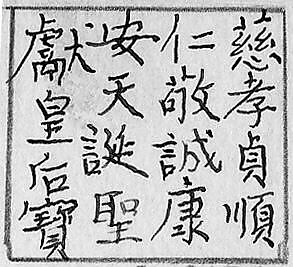 慈孝貞順
仁敬誠康
安天誕聖
獻皇后寶